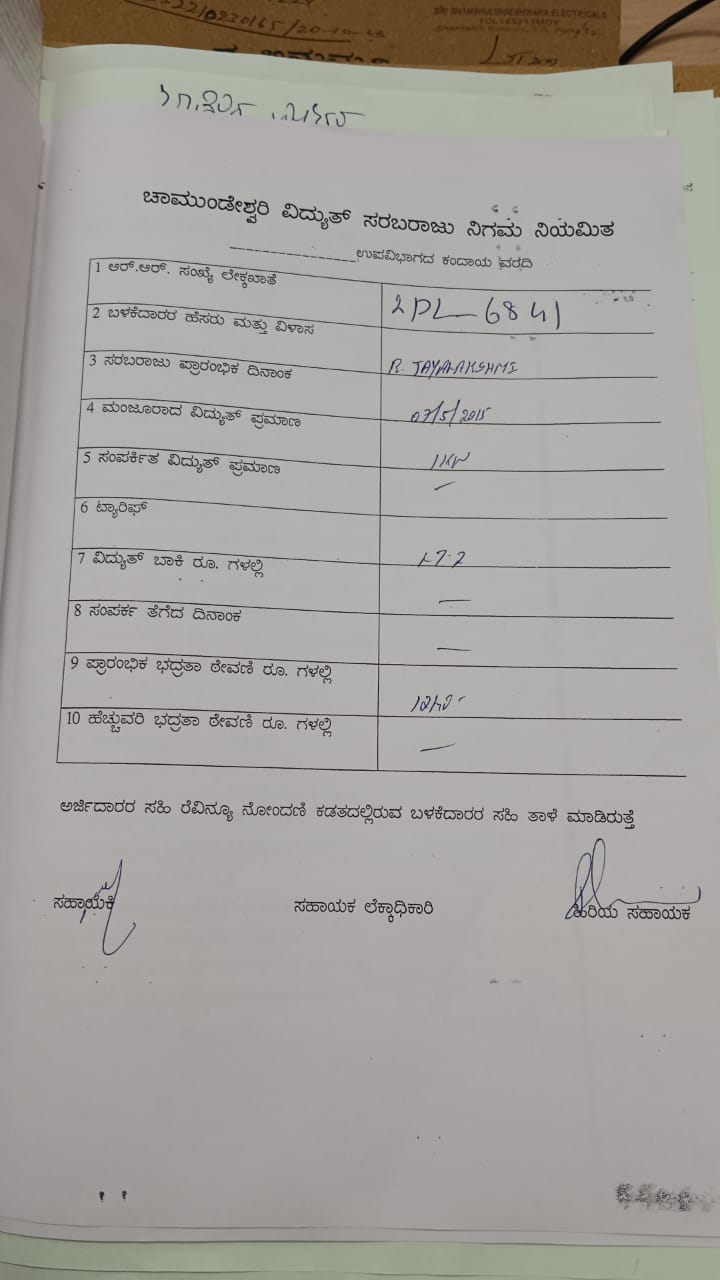 /0230165/20-10-23
SRI SHAMBHULINGESHWARA ELECTRICALS
ಚಾಮುಂಡೇಶ್ವರಿ ವಿದ್ಯುತ್ ಸರಬರಾಜು ನಿಗಮ ನಿಯಮಿತ
________________ಉಪವಿಭಾಗದ ಕಂದಾಯ ವರದಿ
1 ಆರ್.ಆರ್. ಸಂಖ್ಯೆ ಲೇಕ್ಕಖಾತೆ 2PL-6841
2 ಬಳಕೆದಾರರ ಹೆಸರು ಮತ್ತು ವಿಳಾಸ R. JAYALAKSHMI
3 ಸರಬರಾಜು ಪ್ರಾರಂಭಿಕ ದಿನಾಂಕ 07/5/2015
4 ಮಂಜೂರಾದ ವಿದ್ಯುತ್ ಪ್ರಮಾಣ 1KW
5 ಸಂಪರ್ಕಿತ ವಿದ್ಯುತ್ ಪ್ರಮಾಣ —
6 ಟ್ಯಾರಿಫ್
7 ವಿದ್ಯುತ್ ಬಾಕಿ ರೂ. ಗಳಲ್ಲಿ —
8 ಸಂಪರ್ಕ ತೆಗೆದ ದಿನಾಂಕ —
9 ಪ್ರಾರಂಭಿಕ ಭದ್ರತಾ ಠೇವಣಿ ರೂ. ಗಳಲ್ಲಿ
10 ಹೆಚ್ಚುವರಿ ಭದ್ರತಾ ಠೇವಣಿ ರೂ. ಗಳಲ್ಲಿ —
ಅರ್ಜಿದಾರರ ಸಹಿ ರೆವಿನ್ಯೂ ನೋಂದಣಿ ಕಡತದಲ್ಲಿರುವ ಬಳಕೆದಾರರ ಸಹಿ ತಾಳೆ ಮಾಡಿರುತ್ತೆ
ಸಹಾಯಕಿ ಸಹಾಯಕ ಲೆಕ್ಕಾಧಿಕಾರಿ ಹಿರಿಯ ಸಹಾಯಕ